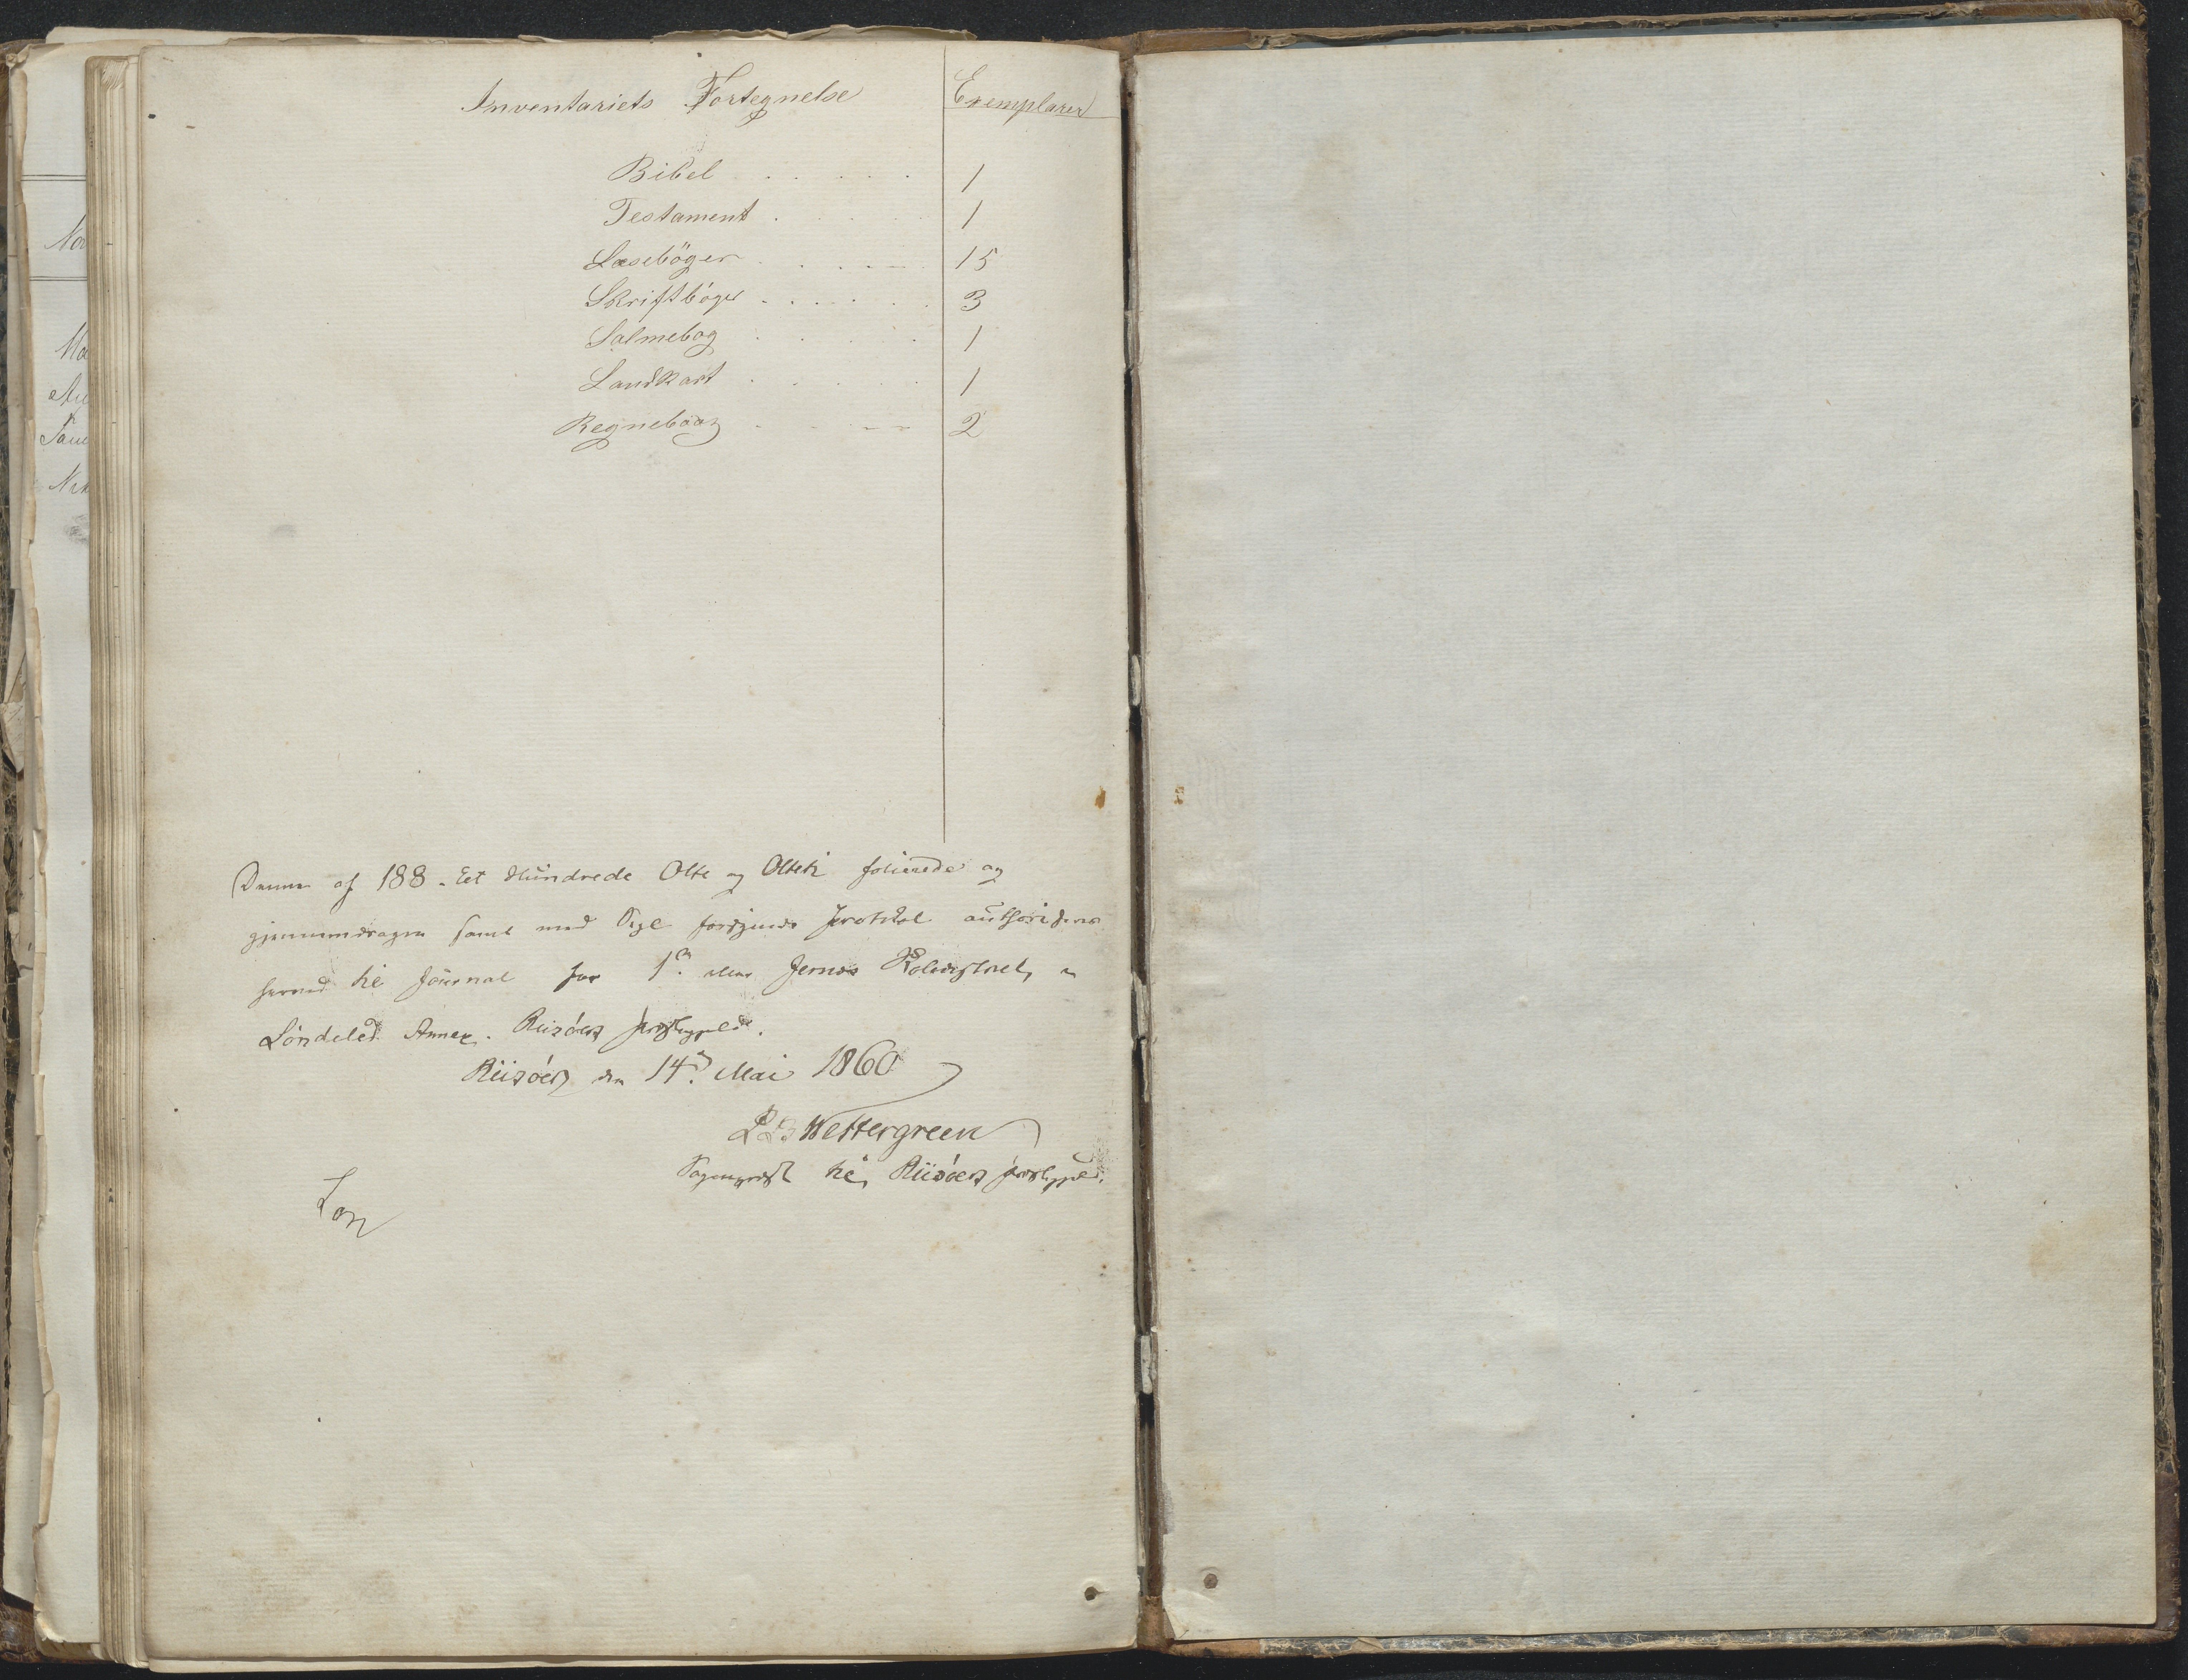 Inventariets Fortegnelse Exemplarer
Bibel . . . . . 1
Testament . . . . 1
Læsebøger . . . . . 15
Skriftbøger . . . . . . 3
Salmebog . . . . . 1
Landkart . . . . . 1
Regnebøog . . . . 2
Denne af 188. Et Hundrede Otte og Otteti folierede og
gjennemdragen samt med Segl forsynede Protokol authoriseres
herved til Journal for 1ste Jernæs Skoledistrict, i
Söndeled Annex. Riisöers Præstegjeld.
Riisöer den 14de Mai 1860
Wettergreen
Sogneprest til Riisöers Præstegjeld.
Nor
Ma
Ne